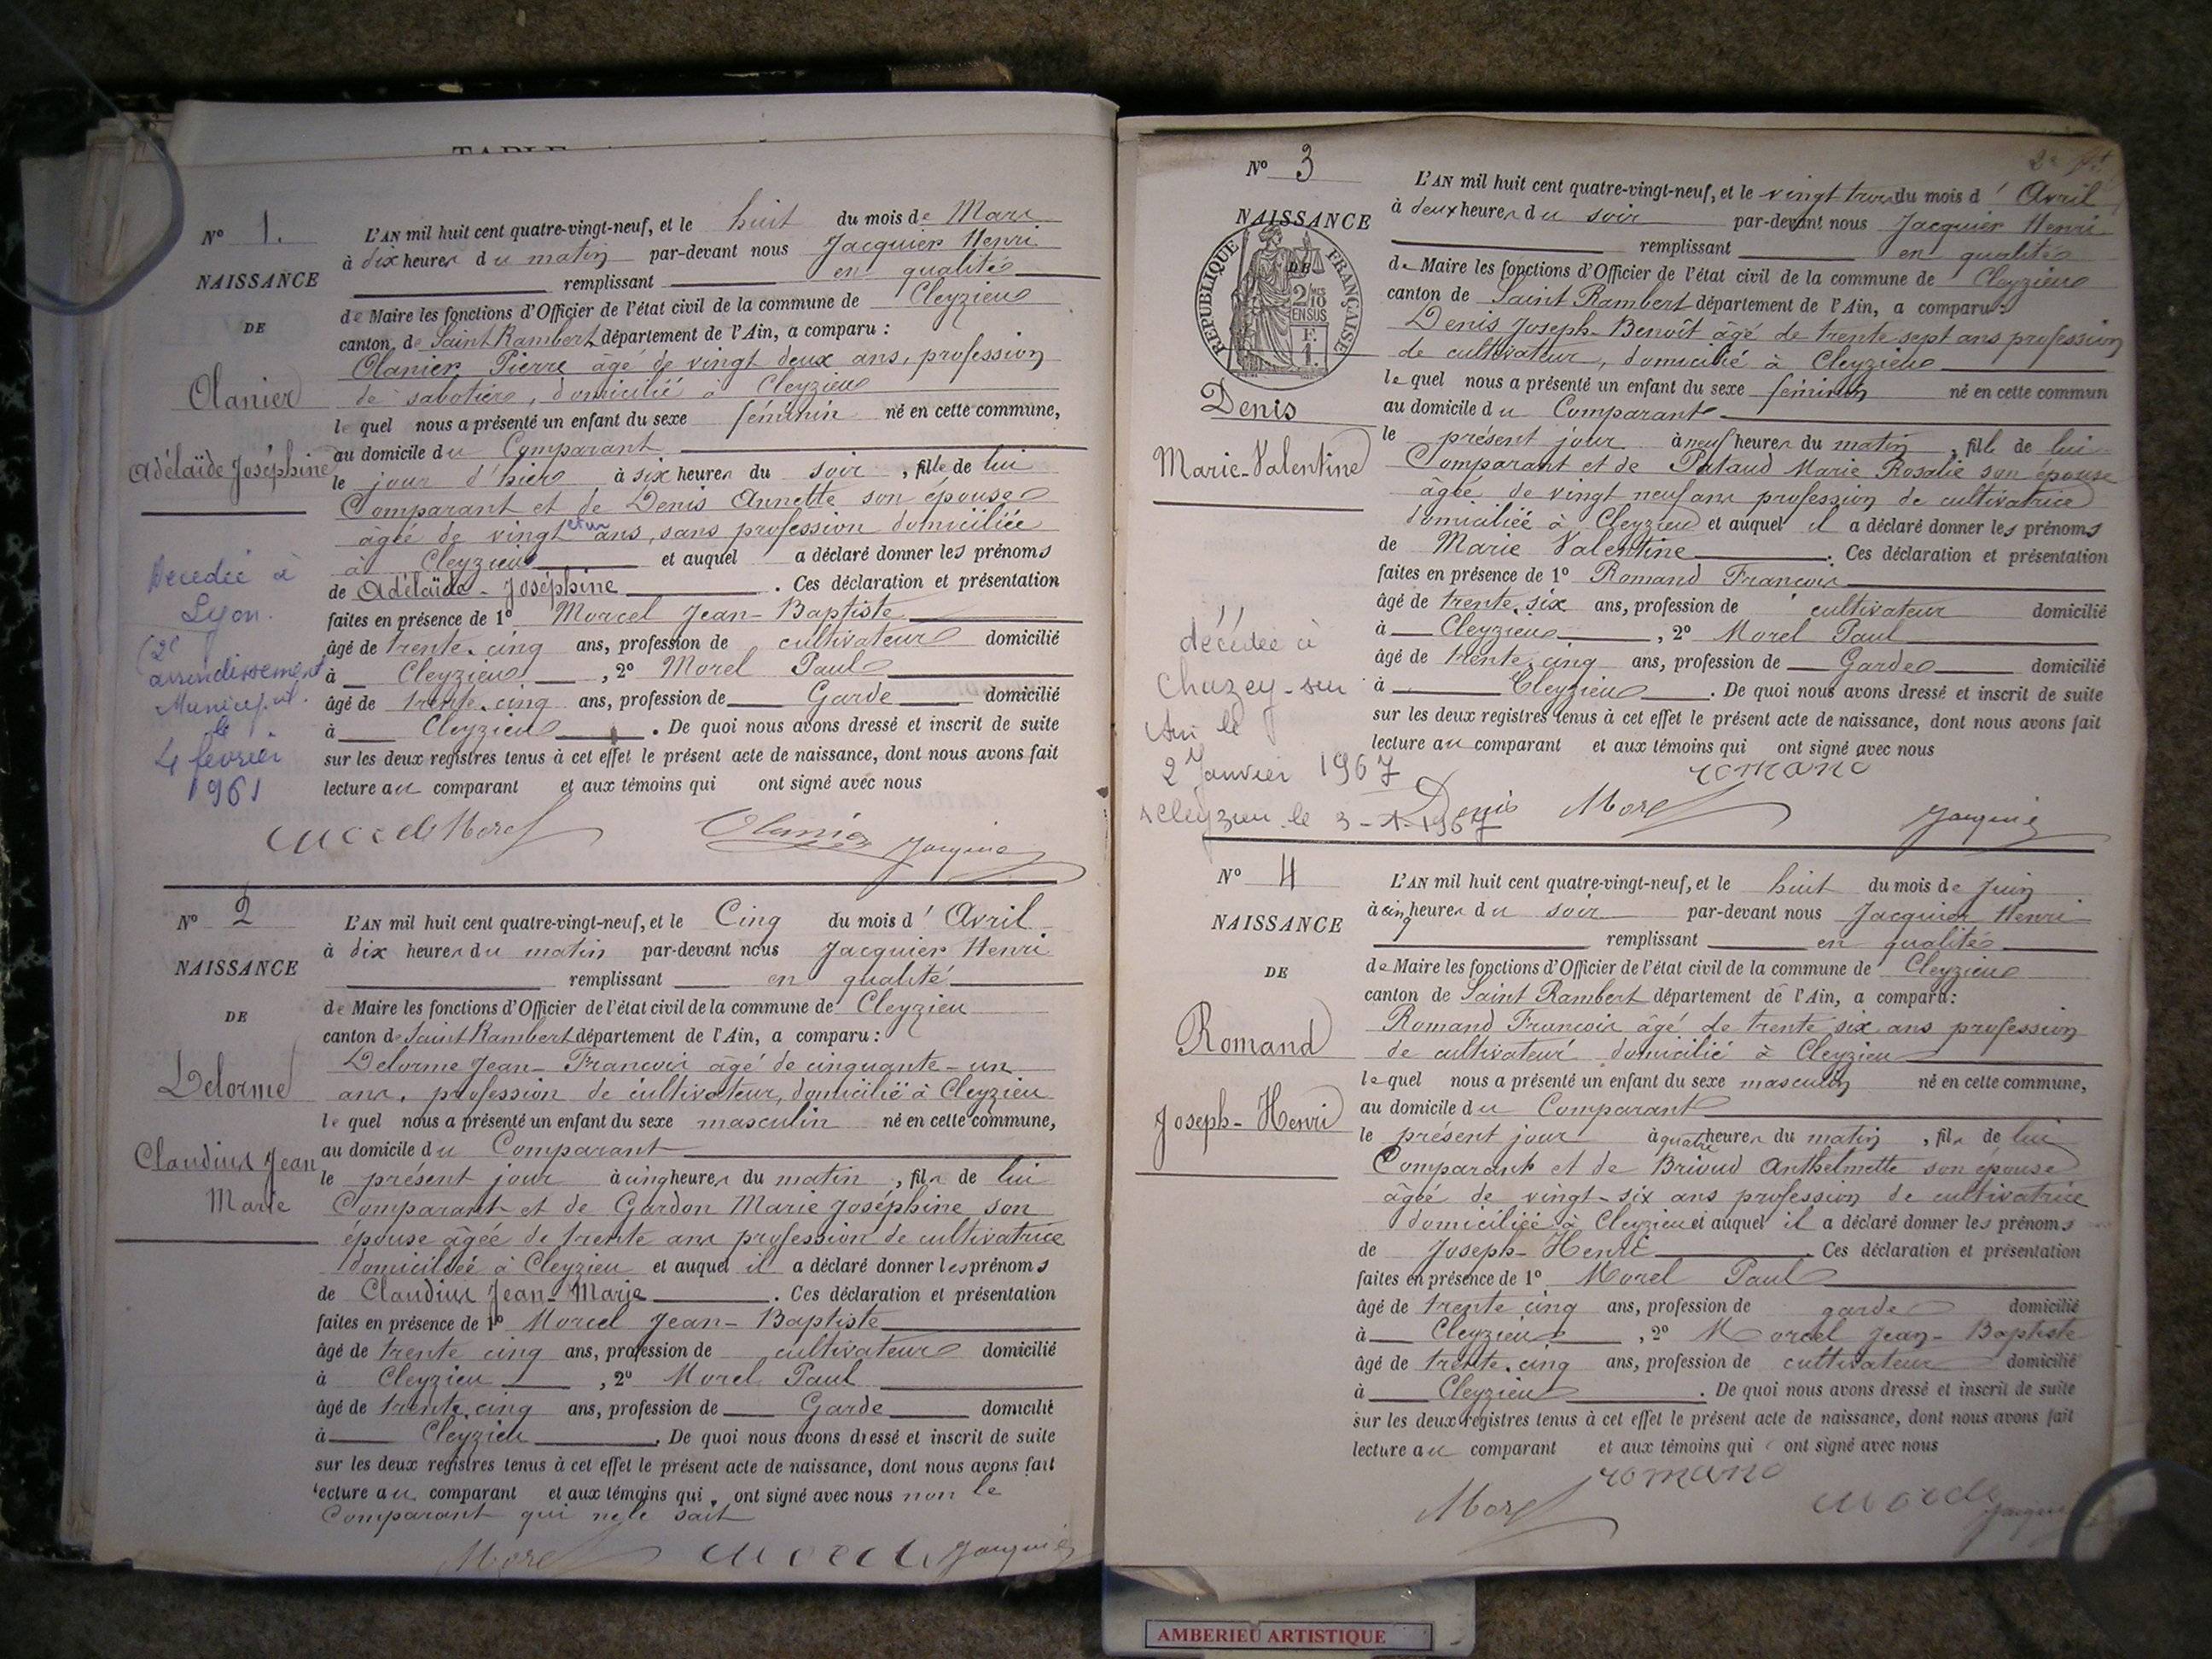 TABLE
N° 1.
NAISSANCE
DE
Olanier
Adélaïde Joséphine
Décédée à
Lyon.
(2e
arrondissement
Municipal.
le
4 février
1961
L'AN mil huit cent quatre-vingt-neuf, et le huit du mois de Mars
à dix heures du matin par-devant nous Jacquier Henri
remplissant en qualité
de Maire les fonctions d'Officier de l'état civil de la commune de Cleyzieu
canton de Saint Rambert département de l'Ain, a comparu :
Olanier Pierre âgé de vingt deux ans, profession
de sabotier, domicilié à Cleyzieu
le quel nous a présenté un enfant du sexe féminin né en cette commune,
au domicile du Comparant
le jour d'hier à six heures du soir, fille de lui
Comparant et de Denis Annette son épouse
âgée de vingt et un ans, sans profession domiciliée
à Cleyzieu et auquel a déclaré donner les prénoms
de Adélaïde - Joséphine. Ces déclaration et présentation
faites en présence de 1° Morcel Jean-Baptiste
âgé de trente.cinq ans, profession de cultivateur domicilié
à Cleyzieu, 2° Morel Paul
âgé de trente.cinq ans, profession de Garde domicilié
à Cleyzieu. De quoi nous avons dressé et inscrit de suite
sur les deux registres tenus à cet effet le présent acte de naissance, dont nous avons fait
lecture au comparant et aux témoins qui ont signé avec nous
morcel Morel Olanier Jacquier
N° 2
NAISSANCE
DE
Delorme
Claudius Jean
Marie
L'AN mil huit cent quatre-vingt-neuf, et le Cinq du mois d'Avril
à dix heures du matin par-devant nous Jacquier Henri
remplissant en qualité
de Maire les fonctions d'Officier de l'état civil de la commune de Cleyzieu
canton de Saint Rambert département de l'Ain, a comparu :
Delorme Jean-François âgé de cinquante-un
ans, profession de cultivateur, domicilié à Cleyzieu
le quel nous a présenté un enfant du sexe masculin né en cette commune,
au domicile du Comparant
le présent jour à cinq heures du matin, fils de lui
Comparant et de Gardon Marie Joséphine son
épouse âgée de trente ans profession de cultivatrice
domiciliée à Cleyzieu et auquel il a déclaré donner les prénoms
de Claudius Jean-Marie. Ces déclaration et présentation
faites en présence de 1° Morcel Jean-Baptiste
âgé de trente cinq ans, profession de cultivateur domicilié
à Cleyzieu, 2° Morel Paul
âgé de trente.cinq ans, profession de Garde domicilié
à Cleyzieu. De quoi nous avons dressé et inscrit de suite
sur les deux registres tenus à cet effet le présent acte de naissance, dont nous avons fait
lecture au comparant et aux témoins qui ont signé avec nous non le
Comparant qui ne le sait
Morel morcel Jacquier
N° 3
NAISSANCE
DE
RÉPUBLIQUE FRANÇAISE
2/10 EN SUS
Denis
Marie-Valentine
décédée à
Chazey-sur
Ain le
2 Janvier 1967
Cleyzieu le 3-1-1967
L'AN mil huit cent quatre-vingt-neuf, et le vingt trois du mois d'Avril
à deux heures du soir par-devant nous Jacquier Henri
remplissant en qualité
de Maire les fonctions d'Officier de l'état civil de la commune de Cleyzieu
canton de Saint Rambert département de l'Ain, a comparu :
Denis Joseph-Benoît âgé de trente sept ans profession
de cultivateur, domicilié à Cleyzieu
le quel nous a présenté un enfant du sexe féminin né en cette commun
au domicile du Comparant
le présent jour à neuf heures du matin, fille de lui
Comparant et de Pataud Marie Rosalie son épouse
âgée de vingt neuf ans profession de cultivatrice
domiciliée à Cleyzieu et auquel il a déclaré donner les prénoms
de Marie Valentine. Ces déclaration et présentation
faites en présence de 1° Romand François
âgé de trente.six ans, profession de cultivateur domicilié
à Cleyzieu, 2° Morel Paul
âgé de trente.cinq ans, profession de Garde domicilié
à Cleyzieu. De quoi nous avons dressé et inscrit de suite
sur les deux registres tenus à cet effet le présent acte de naissance, dont nous avons fait
lecture au comparant et aux témoins qui ont signé avec nous
romand
Denis Morel Jacquier
N° 4
NAISSANCE
DE
Romand
Joseph-Henri
L'AN mil huit cent quatre-vingt-neuf, et le huit du mois de Juin
à cinq heures du soir par-devant nous Jacquier Henri
remplissant en qualité
de Maire les fonctions d'Officier de l'état civil de la commune de Cleyzieu
canton de Saint Rambert département de l'Ain, a comparu :
Romand François âgé de trente six ans profession
de cultivateur domicilié à Cleyzieu
le quel nous a présenté un enfant du sexe masculin né en cette commune,
au domicile du Comparant
le présent jour à quatre heures du matin, fils de lui
Comparant et de Brivud Anthelmette son épouse
âgée de vingt-six ans profession de cultivatrice
domiciliée à Cleyzieu et auquel il a déclaré donner les prénoms
de Joseph-Henri. Ces déclaration et présentation
faites en présence de 1° Morel Paul
âgé de trente cinq ans, profession de garde domicilié
à Cleyzieu, 2° Morcel Jean-Baptiste
âgé de trente.cinq ans, profession de cultivateur domicilié
à Cleyzieu. De quoi nous avons dressé et inscrit de suite
sur les deux registres tenus à cet effet le présent acte de naissance, dont nous avons fait
lecture au comparant et aux témoins qui ont signé avec nous
romand
Morel morcel Jacquier
AMBERIEU ARTISTIQUE